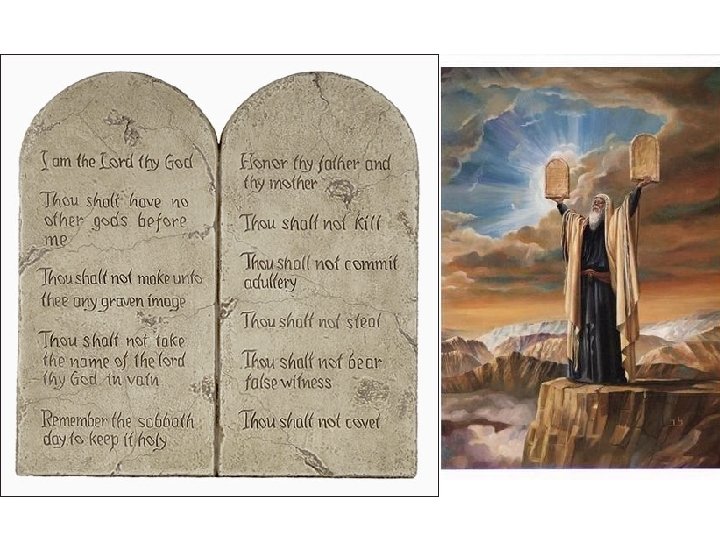 I am the Lord thy God
Thou shalt have no
other gods before
me
Thou shalt not make unto
thee any graven image
Thou shalt not take
the name of the lord
thy God in vain
Remember the sabbath
day to keep it holy
Honor thy father and
thy mother
Thou shalt not kill
Thou shall not commit
adultery
Thou shalt not steal
Thou shalt not bear
false witness
Thou shalt not covet